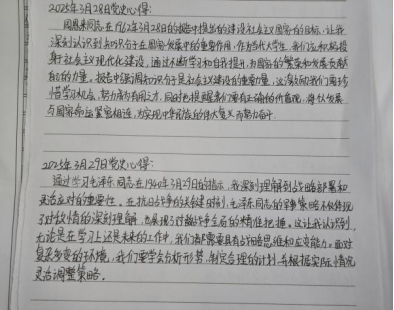 2025年3月28日党史心得:
周恩来同志在1962年3月28日的报告中提出的建设社会主义国家的目标，让我
深刻认识到知识分子在国家发展中的重要作用，作为当代大学生，我们应积极投
身社会主义现代化建设，通过不断学习和自我提升，为国家的繁荣和发展贡献
自己的力量。报告中强调知识分子是社会主义建设的重要力量，这激励我们要珍
惜学习机会，努力成为有用之才，同时也提醒我们要有正确的价值观，将个人发展
与国家命运紧密相连，为实现中华民族的伟大复兴而努力奋斗。
2025年3月29日党史心得:
通过学习毛泽东同志在1940年3月29日的指示，我深刻理解到战略部署和
灵活应对的重要性。在抗日战争的关键时刻，毛泽东同志的军事策略不仅体现
了对敌情的深刻理解，也展现了对战争全局的精准把握。这让我认识到，
无论是在学习上还是未来的工作中，我们都需要具有战略思维和应变能力。面对
复杂多变的环境，我们要学会分析形势，制定合理的计划，并根据实际情况
灵活调整策略。